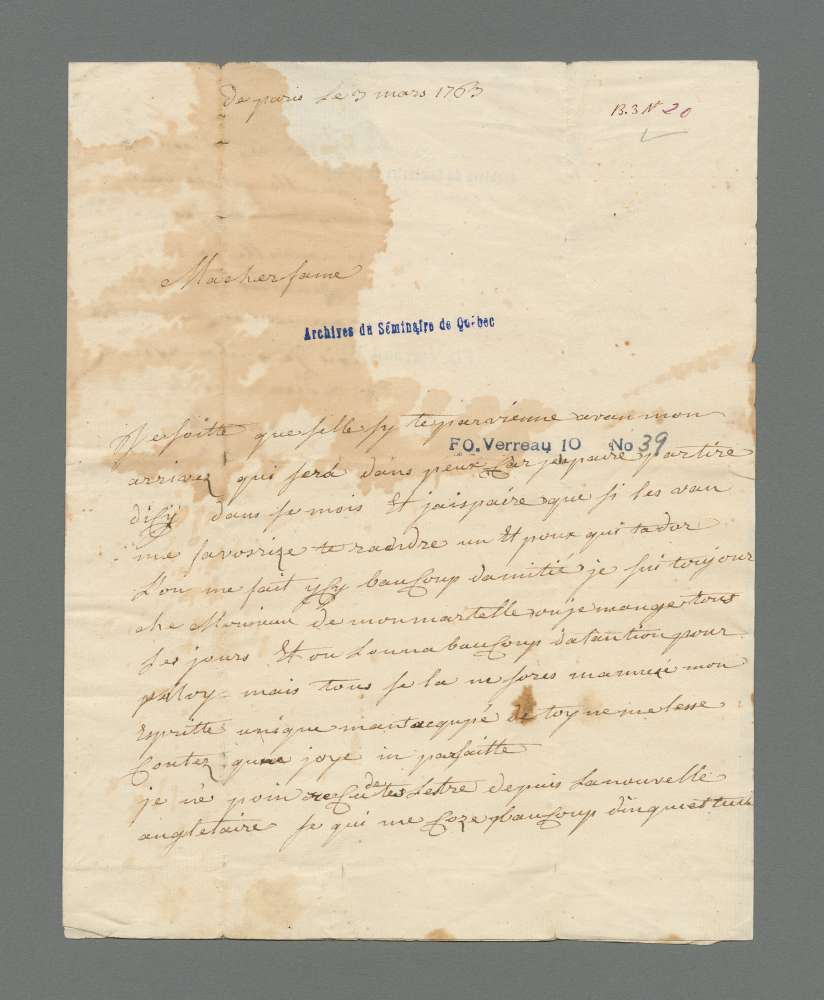 de paris le 3 mars 1763
B.3 N° 20
Ma cher fame
Archives du Séminaire de Québec
Je soitte que selle sy te parvienne avan mon
FO. Verreau 10 No 39
arrivez qui sera dans peux Car jespaire partire
dicy dans se mois Et jaispaire que si les van
me favorize te raindre un Et poux qui tador
L'on me fait ycy bauCoup damitié je sui toujour
che Monsieur de monmartelle ou je mange tous
les jours Et ou Lonna bauCoup datantion pour
moy mais tous se la ne sores mannuié mon
Espritte unique mant acqupé de toy ne me lesse
Goutez qune joye in parfaitte
je né poin reCu de tes Lestre depuis La nouvelle
angletaire se qui me Coze bauCoup dinquiettude